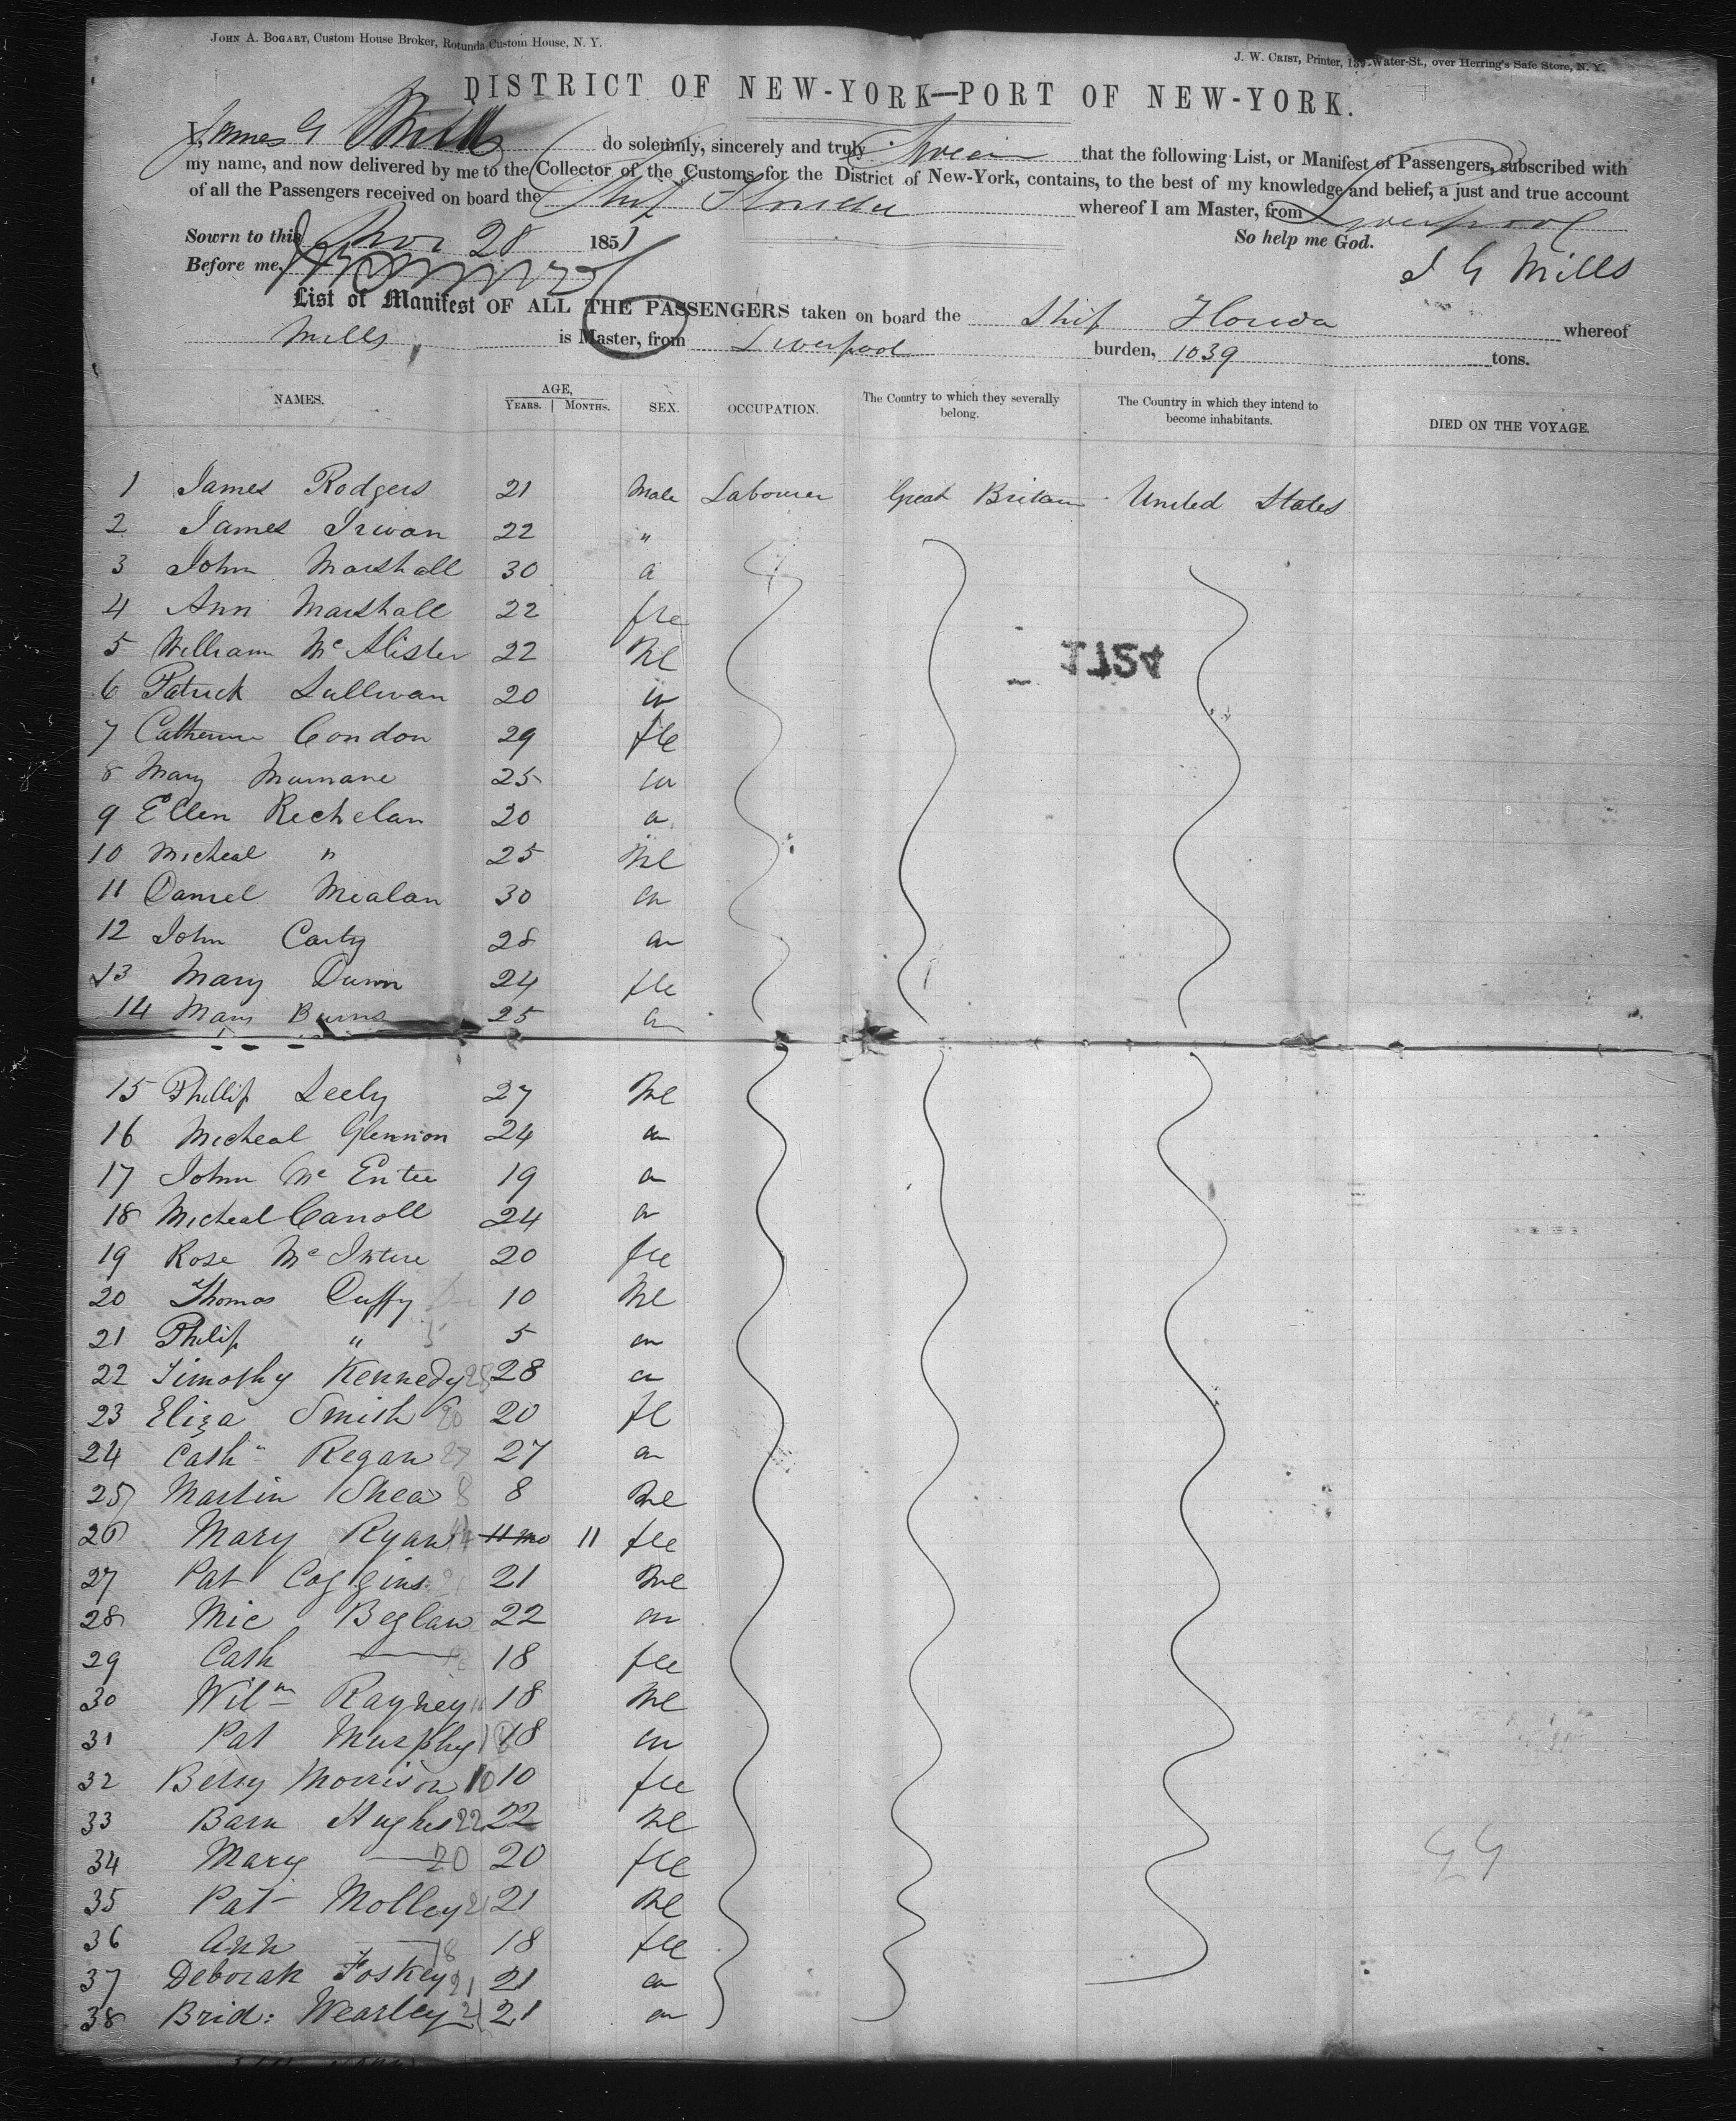 JOHN A. BOGART, Custom House Broker, Rotunda Custom House, N. Y.
J. W. CRIST, Printer, 139 Water-St., over Herring's Safe Store, N. Y.
DISTRICT OF NEW-YORK—PORT OF NEW-YORK.
I, James G Mills do solemnly, sincerely and truly Swear that the following List, or Manifest of Passengers, subscribed with
my name, and now delivered by me to the Collector of the Customs for the District of New-York, contains, to the best of my knowledge and belief, a just and true account
of all the Passengers received on board the Ship Florida whereof I am Master, from Liverpool
Sowrn to this Nov 28 1851 So help me God.
Before me, J G Mills
List or Manifest OF ALL THE PASSENGERS taken on board the Ship Florida whereof
Mills is Master, from Liverpool burden, 1039 tons.
NAMES. AGE, YEARS. MONTHS. SEX. OCCUPATION. The Country to which they severally belong. The Country in which they intend to become inhabitants. DIED ON THE VOYAGE.
1 James Rodgers 21 Male Labourer Great Britain United States
2 James Irwan 22 "
3 John Marshall 30 "
4 Ann Marshall 22 fle
5 William Mc Alister 22 Ml
6 Patrick Sullivan 20 "
7 Catherine Condon 29 fle
8 Mary Murnane 25 "
9 Ellen Rechelan 20 "
10 Micheal " 25 Ml
11 Daniel Mealan 30 "
12 John Carty 28 "
13 Mary Dunn 24 fle
14 Mary Burns 25 "
15 Phillip Leely 27 Ml
16 Micheal Glennon 24 "
17 John Mc Entee 19 "
18 Micheal Carroll 24 "
19 Rose Mc Intire 20 fle
20 Thomas Duffy 10 Ml
21 Philip " 5 5 "
22 Timothy Kennedy 28 28 "
23 Eliza Smith 20 20 fl
24 Cath Regan 27 27 "
25 Martin Shea 8 8 Ml
26 Mary Ryan 11 mo 11 fle
27 Pat Coggins 21 21 Ml
28 Mic Beglan 22 "
29 Cath — 18 18 fle
30 Wilm Rayney 18 Ml
31 Pat Murphy 18 18 "
32 Betsy Morrison 10 10 fle
33 Barn Hughes 22 22 Ml
34 Mary — 20 20 fle
35 Pat Molley 21 21 Ml
36 Ann — 18 18 fle
37 Deborah Foskey 21 21 "
38 Brid: Wearley 21 21 "